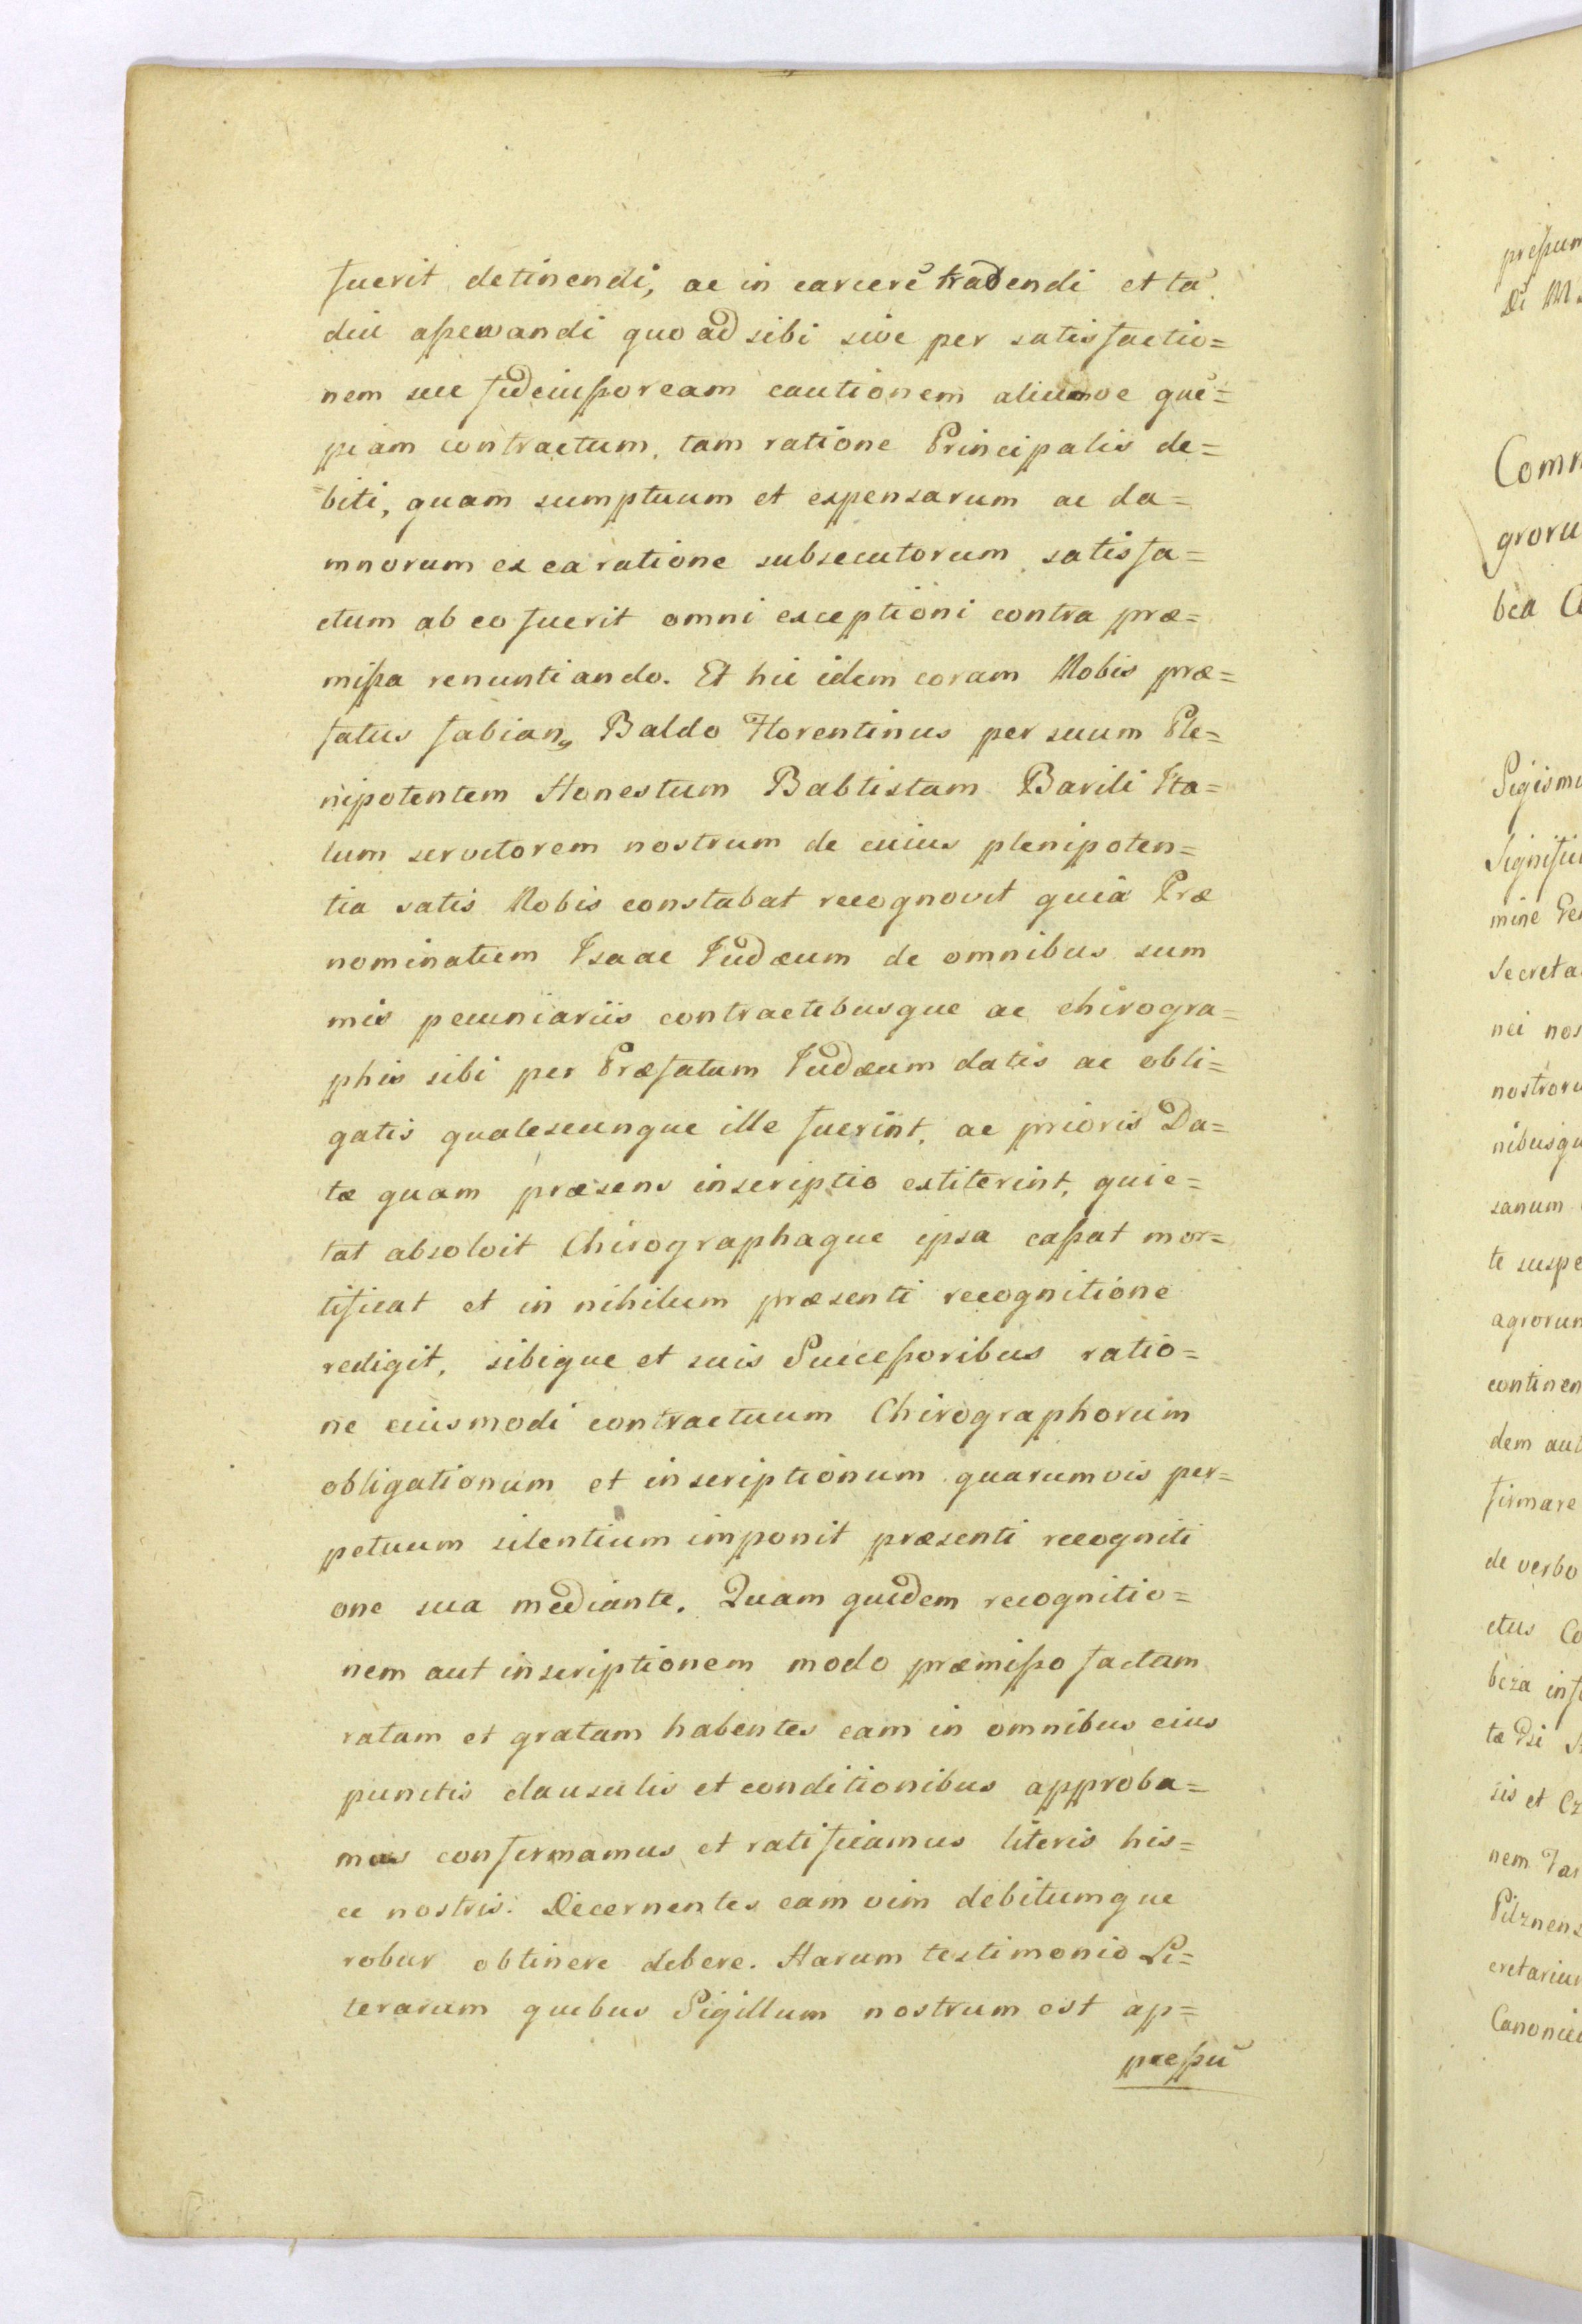 fuerit detinendi, ac in carcerē tradendi et tā
diu asservandi quo ad sibi sive per satisfactio=
nem seu fideiussoream cautionem aliumve quē=
piam contractum, tam ratione Principalis de=
biti, quam sumptuum et expensarum ac da=
mnorum ex ea ratione subsecutorum satisfa=
ctum ab eo fuerit omni exceptioni contra præ=
missa renuntiando. Et hic idem coram Nobis præ=
fatus fabianꝯ Baldo Florentinus per suum Ple=
nipotentem Honestum Babtistam Barili Ita=
lum servitorem nostrum de cuius plenipoten=
tia satis Nobis constabat recognovit quia Præ
nominatum Isaac Iudæum de omnibus sum
mis pecuniariis contractibusque ac chirogra=
phis sibi per Præfatum Iudæum datis ac obli=
gatis qualescunque ille fuerint, ac prioris Da=
tæ quam præsens inscriptio extiterint, quie=
tat absolvit Chirographaque ipsa cassat mor=
tificat et in nihilum præsenti recognitione
redigit, sibique et suis Successoribus ratio=
ne eiusmodi contractuum Chirographorum
obligationum et inscriptionum quarumvis per=
petuum silentium imponit præsenti recogniti
one sua mediante. Quam quidem recognitio=
nem aut inscriptionem modo præmisso factam
ratam et gratam habentes eam in omnibus eius
punctis clausulis et conditionibus approba=
mus confirmamus et ratificamus literis his=
ce nostris: Decernentes eam vim debitumque
robur obtinere debere. Harum testimonio Li=
terarum quibus Sigillum nostrum est ap=
pressū
pressum
Comm
groru
bea
Sigismu
Significa
mine
Secreta
nei nos
nostroru
nibusqu
sanum
te suspe
agrorum
continen
dem aut
firmare
de verbo
ctus Co
beza inf
tæ
sis et Cz
nem Tar
Pilznens
cretarium
Canonici